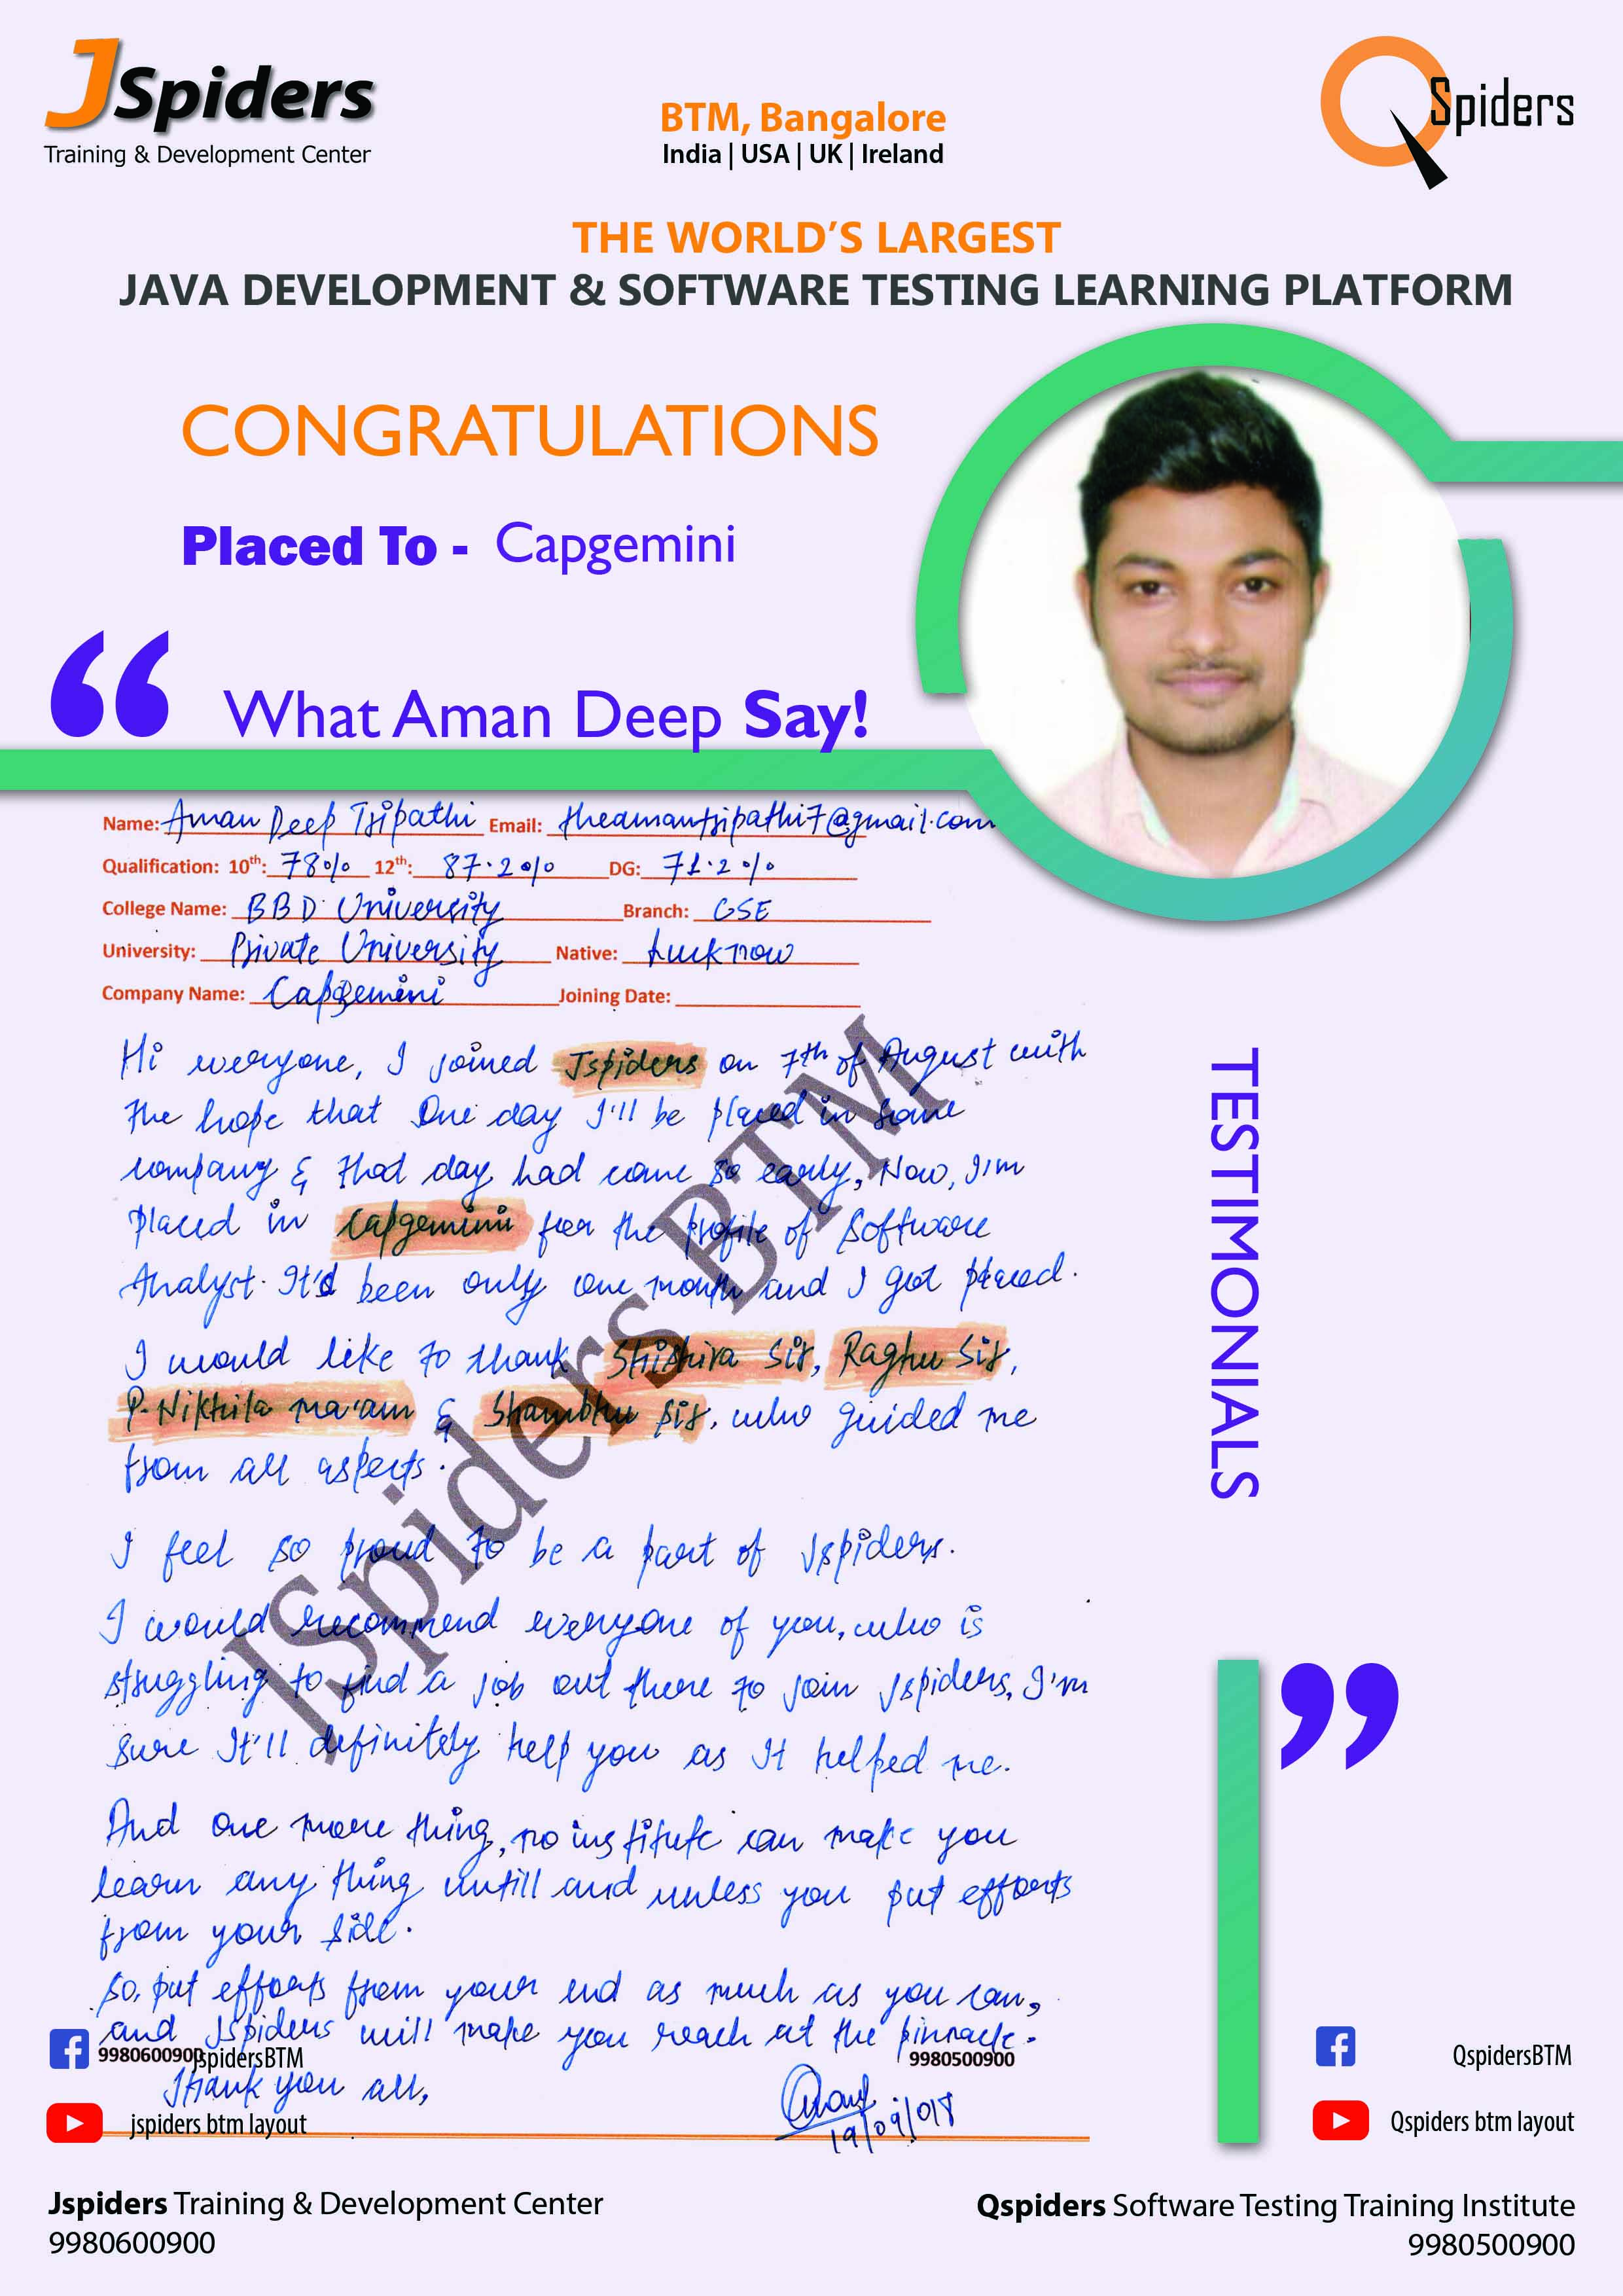 JSpiders
Training & Development Center
BTM, Bangalore
India | USA | UK | Ireland
QSpiders
THE WORLD'S LARGEST
JAVA DEVELOPMENT & SOFTWARE TESTING LEARNING PLATFORM
CONGRATULATIONS
Placed To - Capgemini
“ What Aman Deep Say!
Name: Aman Deep Tripathi Email: theamantripathi7@gmail.com
Qualification: 10th: 78% 12th: 87.2% DG: 71.2%
College Name: BBD University Branch: CSE
University: Private University Native: Lucknow
Company Name: Capgemini Joining Date:
Hi everyone, I joined Jspiders on 7th of August with
the hope that One day I'll be placed in some
company & that day had come so early, Now, I'm
placed in Capgemini for the profile of Software
Analyst. It'd been only one month and I got placed.
I would like to thank Shishira Sir, Raghu Sir,
P. Nikhila ma'am & Shambhu Sir, who guided me
from all aspects.
I feel so proud to be a part of Jspiders.
I would recommend everyone of you, who is
struggling to find a job out there to join Jspiders, I'm
sure It'll definitely help you as It helped me.
And one more thing, no institute can make you
learn any thing untill and unless you put efforts
from your side.
So, put efforts from your end as much as you can,
and Jspiders will make you reach at the pinnacle.
Thank you all,
19/09/018
JSpiders BTM
TESTIMONIALS
”
9980600900 jspidersBTM
9980500900
jspiders btm layout
QspidersBTM
Qspiders btm layout
Jspiders Training & Development Center
9980600900
Qspiders Software Testing Training Institute
9980500900